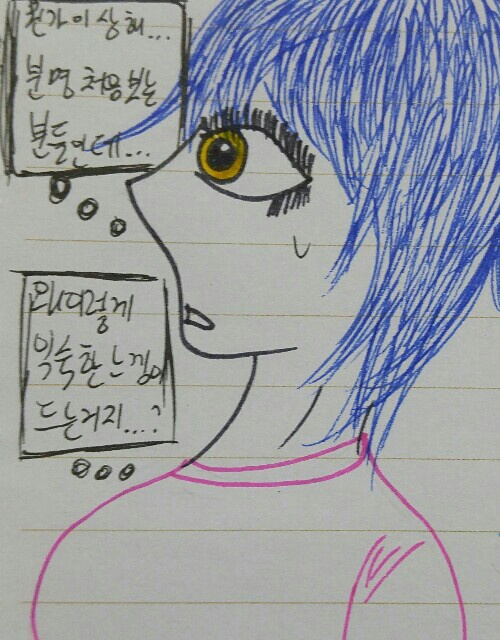 뭔가 이상해...
분명 처음보는
분들인데...
왜 이렇게
익숙한 느낌이
드는거지....?